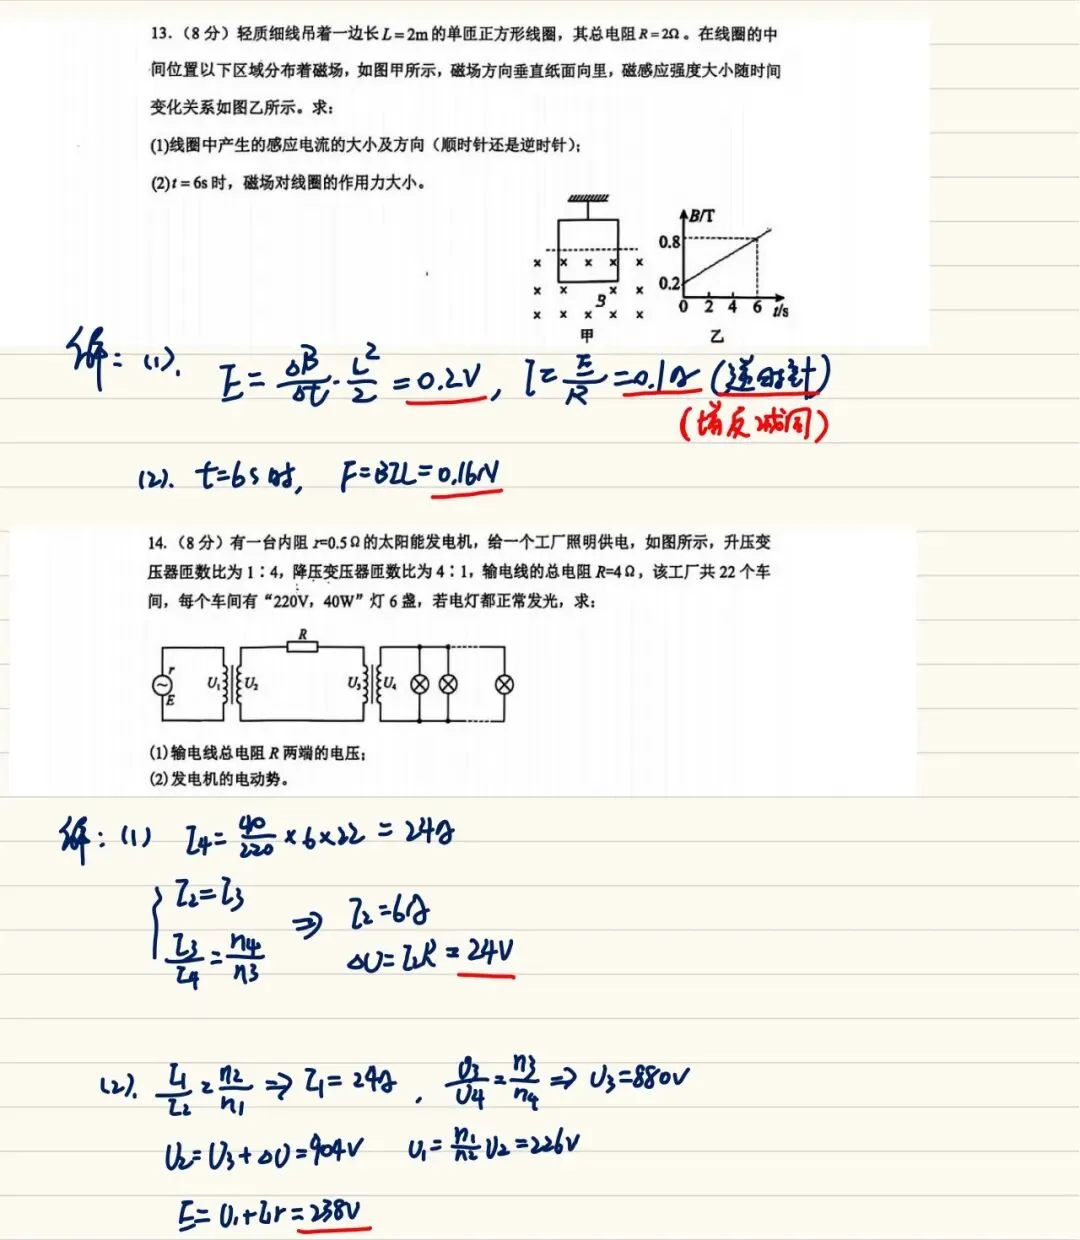 13.（8 分）轻质细线吊着一边长L=2m的单匝正方形线圈，其总电阻R=2Ω。在线圈的中
间位置以下区域分布着磁场，如图甲所示，磁场方向垂直纸面向里，磁感应强度大小随时间
变化关系如图乙所示。求：
(1)线圈中产生的感应电流的大小及方向（顺时针还是逆时针）；
(2)t = 6s 时，磁场对线圈的作用力大小。
B/T
0.8
0.2
0 2 4 6 t/s
B
甲 乙
解：(1). E = ΔB/Δt · L²/2 = 0.2V, I = E/R = 0.1A (逆时针)
(增反减同)
(2). t=6s时, F=BIL=0.16N
14.（8 分）有一台内阻 r=0.5Ω的太阳能发电机，给一个工厂照明供电，如图所示，升压变
压器匝数比为 1：4，降压变压器匝数比为 4：1，输电线的总电阻 R=4Ω，该工厂共 22 个车
间，每个车间有“220V，40W”灯 6 盏，若电灯都正常发光，求：
R
r
E U₁ U₂ U₃ U₄
(1)输电线总电阻 R 两端的电压；
(2)发电机的电动势。
解：(1) I₄ = 40/220 × 6 × 22 = 24A
I₂=I₃
I₃/I₄ = n₄/n₃ ⇒ I₂=6A
ΔU=I₂R=24V
(2). I₁/I₂ = n₂/n₁ ⇒ I₁=24A, U₃/U₄ = n₃/n₄ ⇒ U₃=880V
U₂=U₃+ΔU=904V U₁=n₁/n₂ U₂=226V
E=U₁+I₁r=238V